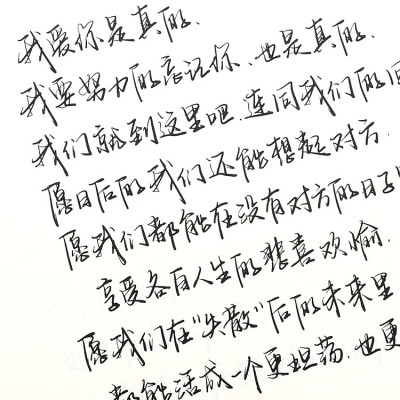 我爱你是真的.
我要努力的忘记你、也是真的.
我们就到这里吧.连同我们的回
愿日后的我们还能想起对方.
愿我们都能在没有对方的日子
享受各自人生的悲喜欢愉.
愿我们在"失散"后的未来里
都能活成一个更坦荡.也更